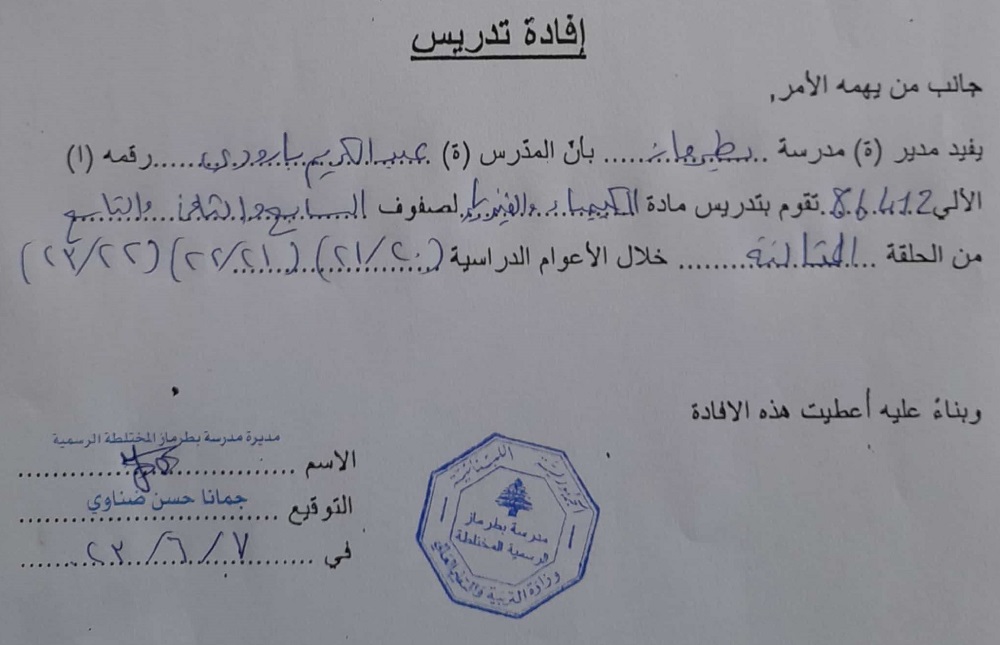 إفادة تدريس
جانب من يهمه الأمر,
يفيد مدير (ة) مدرسة بطرماز بأنّ المدّرس (ة) عبد الكريم بارودي رقمه (ا)
الألي 86412 تقوم بتدريس مادة الكيمياء والفيزياء لصفوف السابع والثامن والتاسع
من الحلقة الثالثة خلال الأعوام الدراسية (٢١/٢٠) (٢٢/٢١) (٢٣/٢٢)
وبناءً عليه أعطيت هذه الافادة
مديرة مدرسة بطرماز المختلطة الرسمية
الاسم
التوقيع جمانا حسن ضناوي
في ٢٣/٦/٧
الجمهورية اللبنانية
مدرسة بطرماز
الرسمية المختلطة
وزارة التربية والتعليم العالي